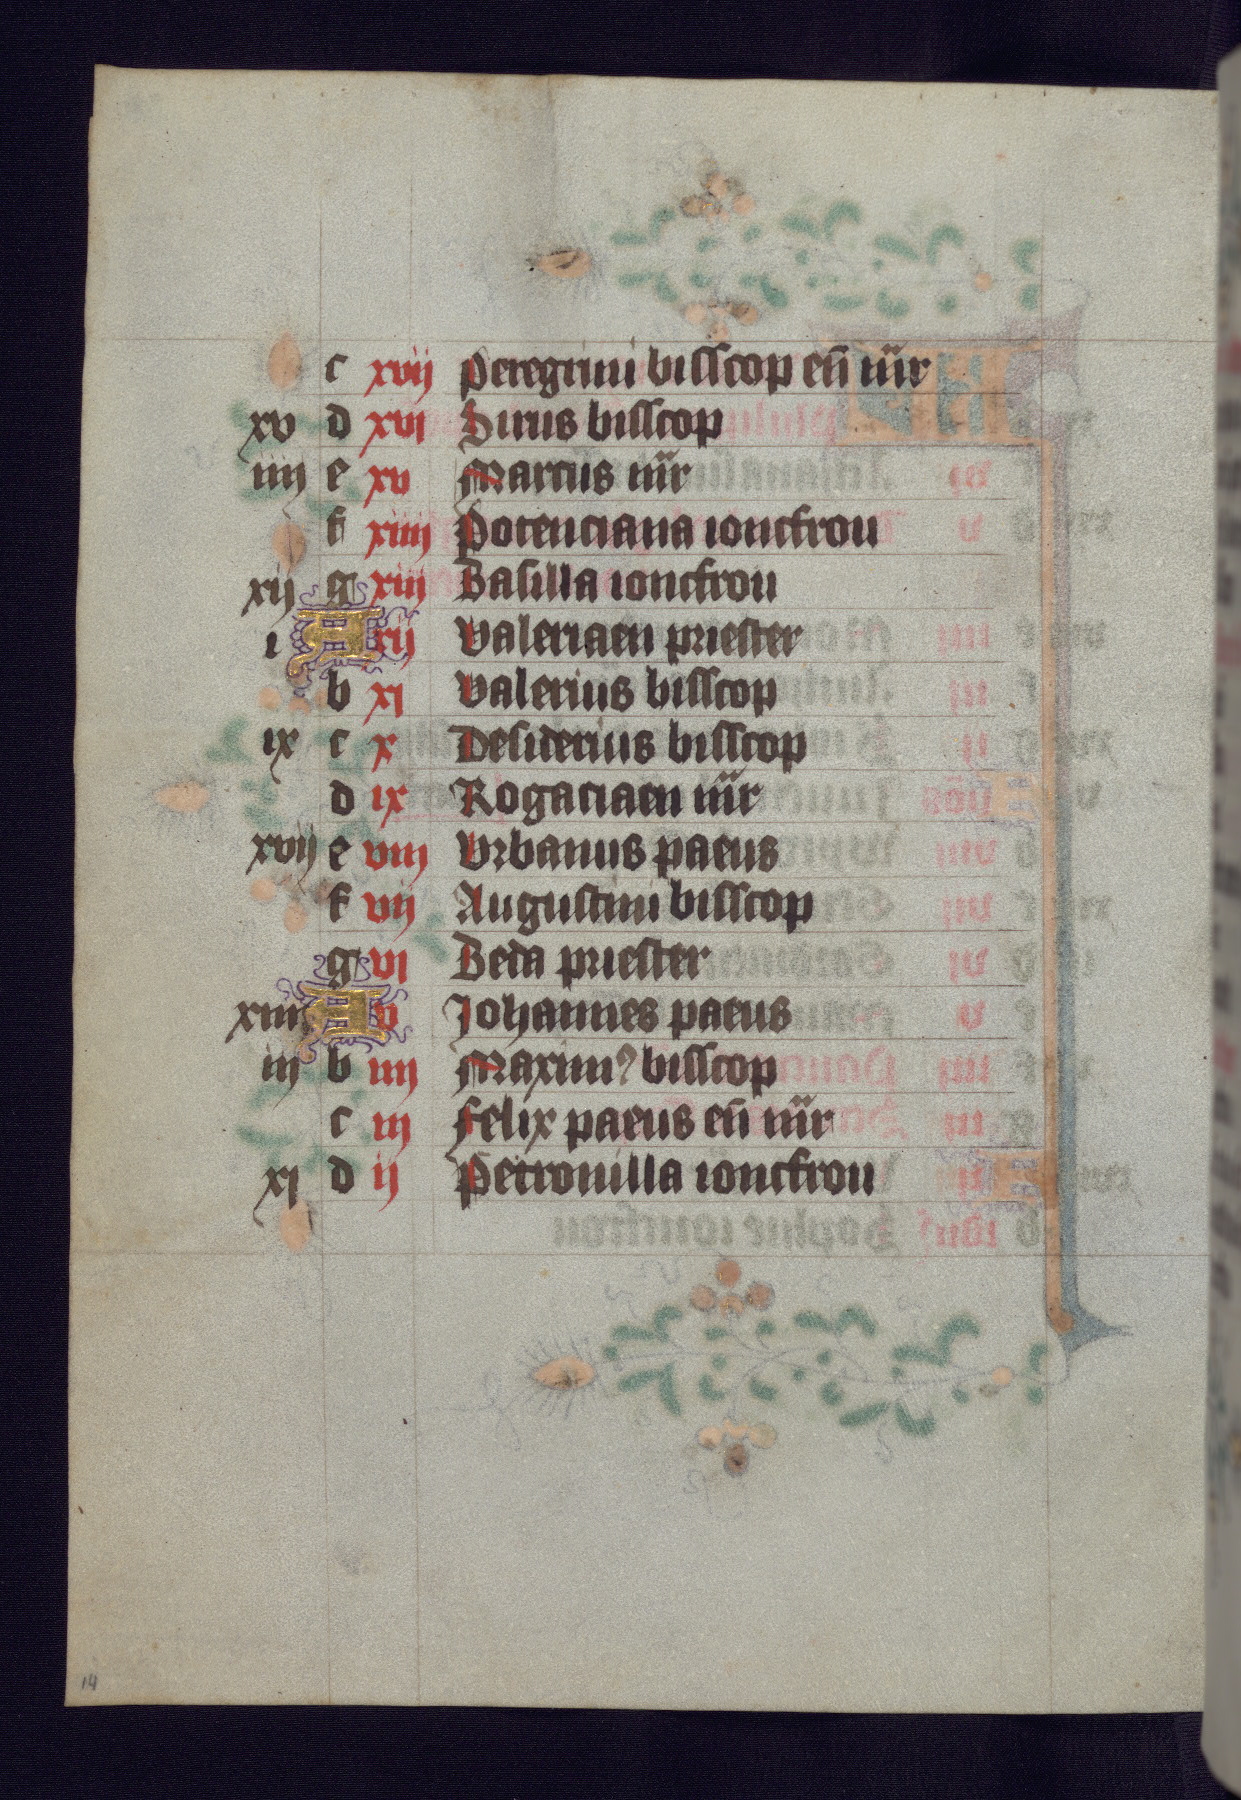 c xvij Peregrini bisscop eñ mr̃
xv d xvi Sirus bisscop
iiij e xv Marcus mr̃
f xiiij Potenciana ioncfrou
xij g xiij Basilla ioncfrou
i A xij Valeriaen priester
b xj Valerius bisscop
ix c x Desiderius bisscop
d ix Rogaciaen mr̃
xvij e viij Vrbanus paeus
f vij Augustini bisscop
g vi Beda priester
xiiij A v Johannes paeus
iij b iiij Maximꝰ bisscop
c iij Felix paeus eñ mr̃
xj d ij Petronilla ioncfrou
14